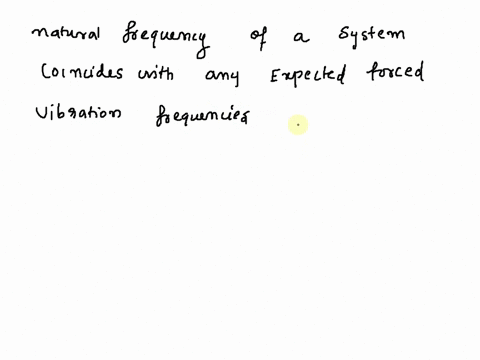 natural frequency of a system
Coincides with any Expected forced
Vibration frequencies